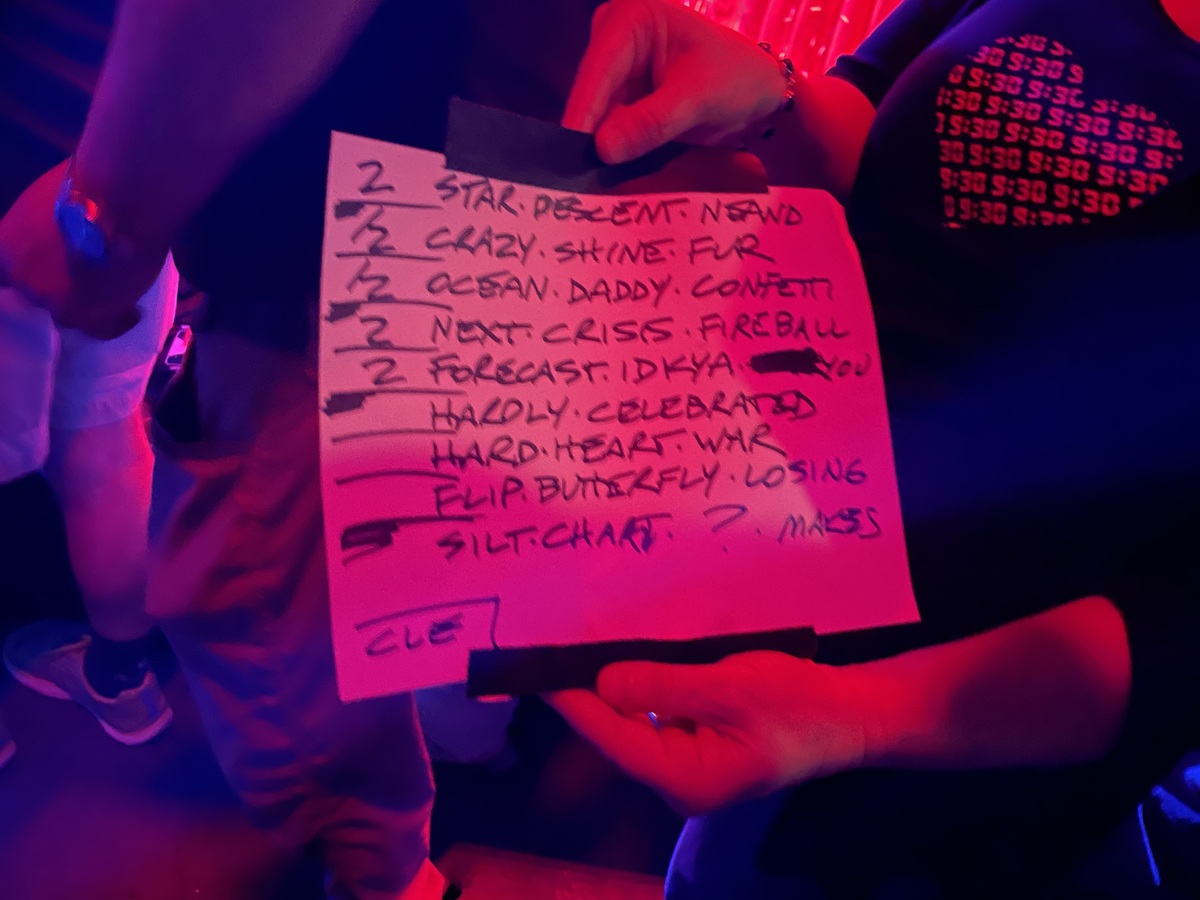 2 STAR. DESCENT. NEAND
1/2 CRAZY. SHINE. FUR
1/2 OCEAN. DADDY. CONFETTI
2 NEXT. CRISIS. FIREBALL
2 FORECAST. IDKYA. YOU
HARDLY. CELEBRATED
HARD. HEART. WAR
FLIP. BUTTERFLY. LOSING
SILT. CHART. ?. MAKES
CLE
9:30 9:30
9:30 9:30 9:30
9:30 9:30 9:30 9:30
9:30 9:30 9:30 9:30
9:30 9:30 9:30 9:30
9:30 9:30 9:30 9:30
9:30 9:30 9:30